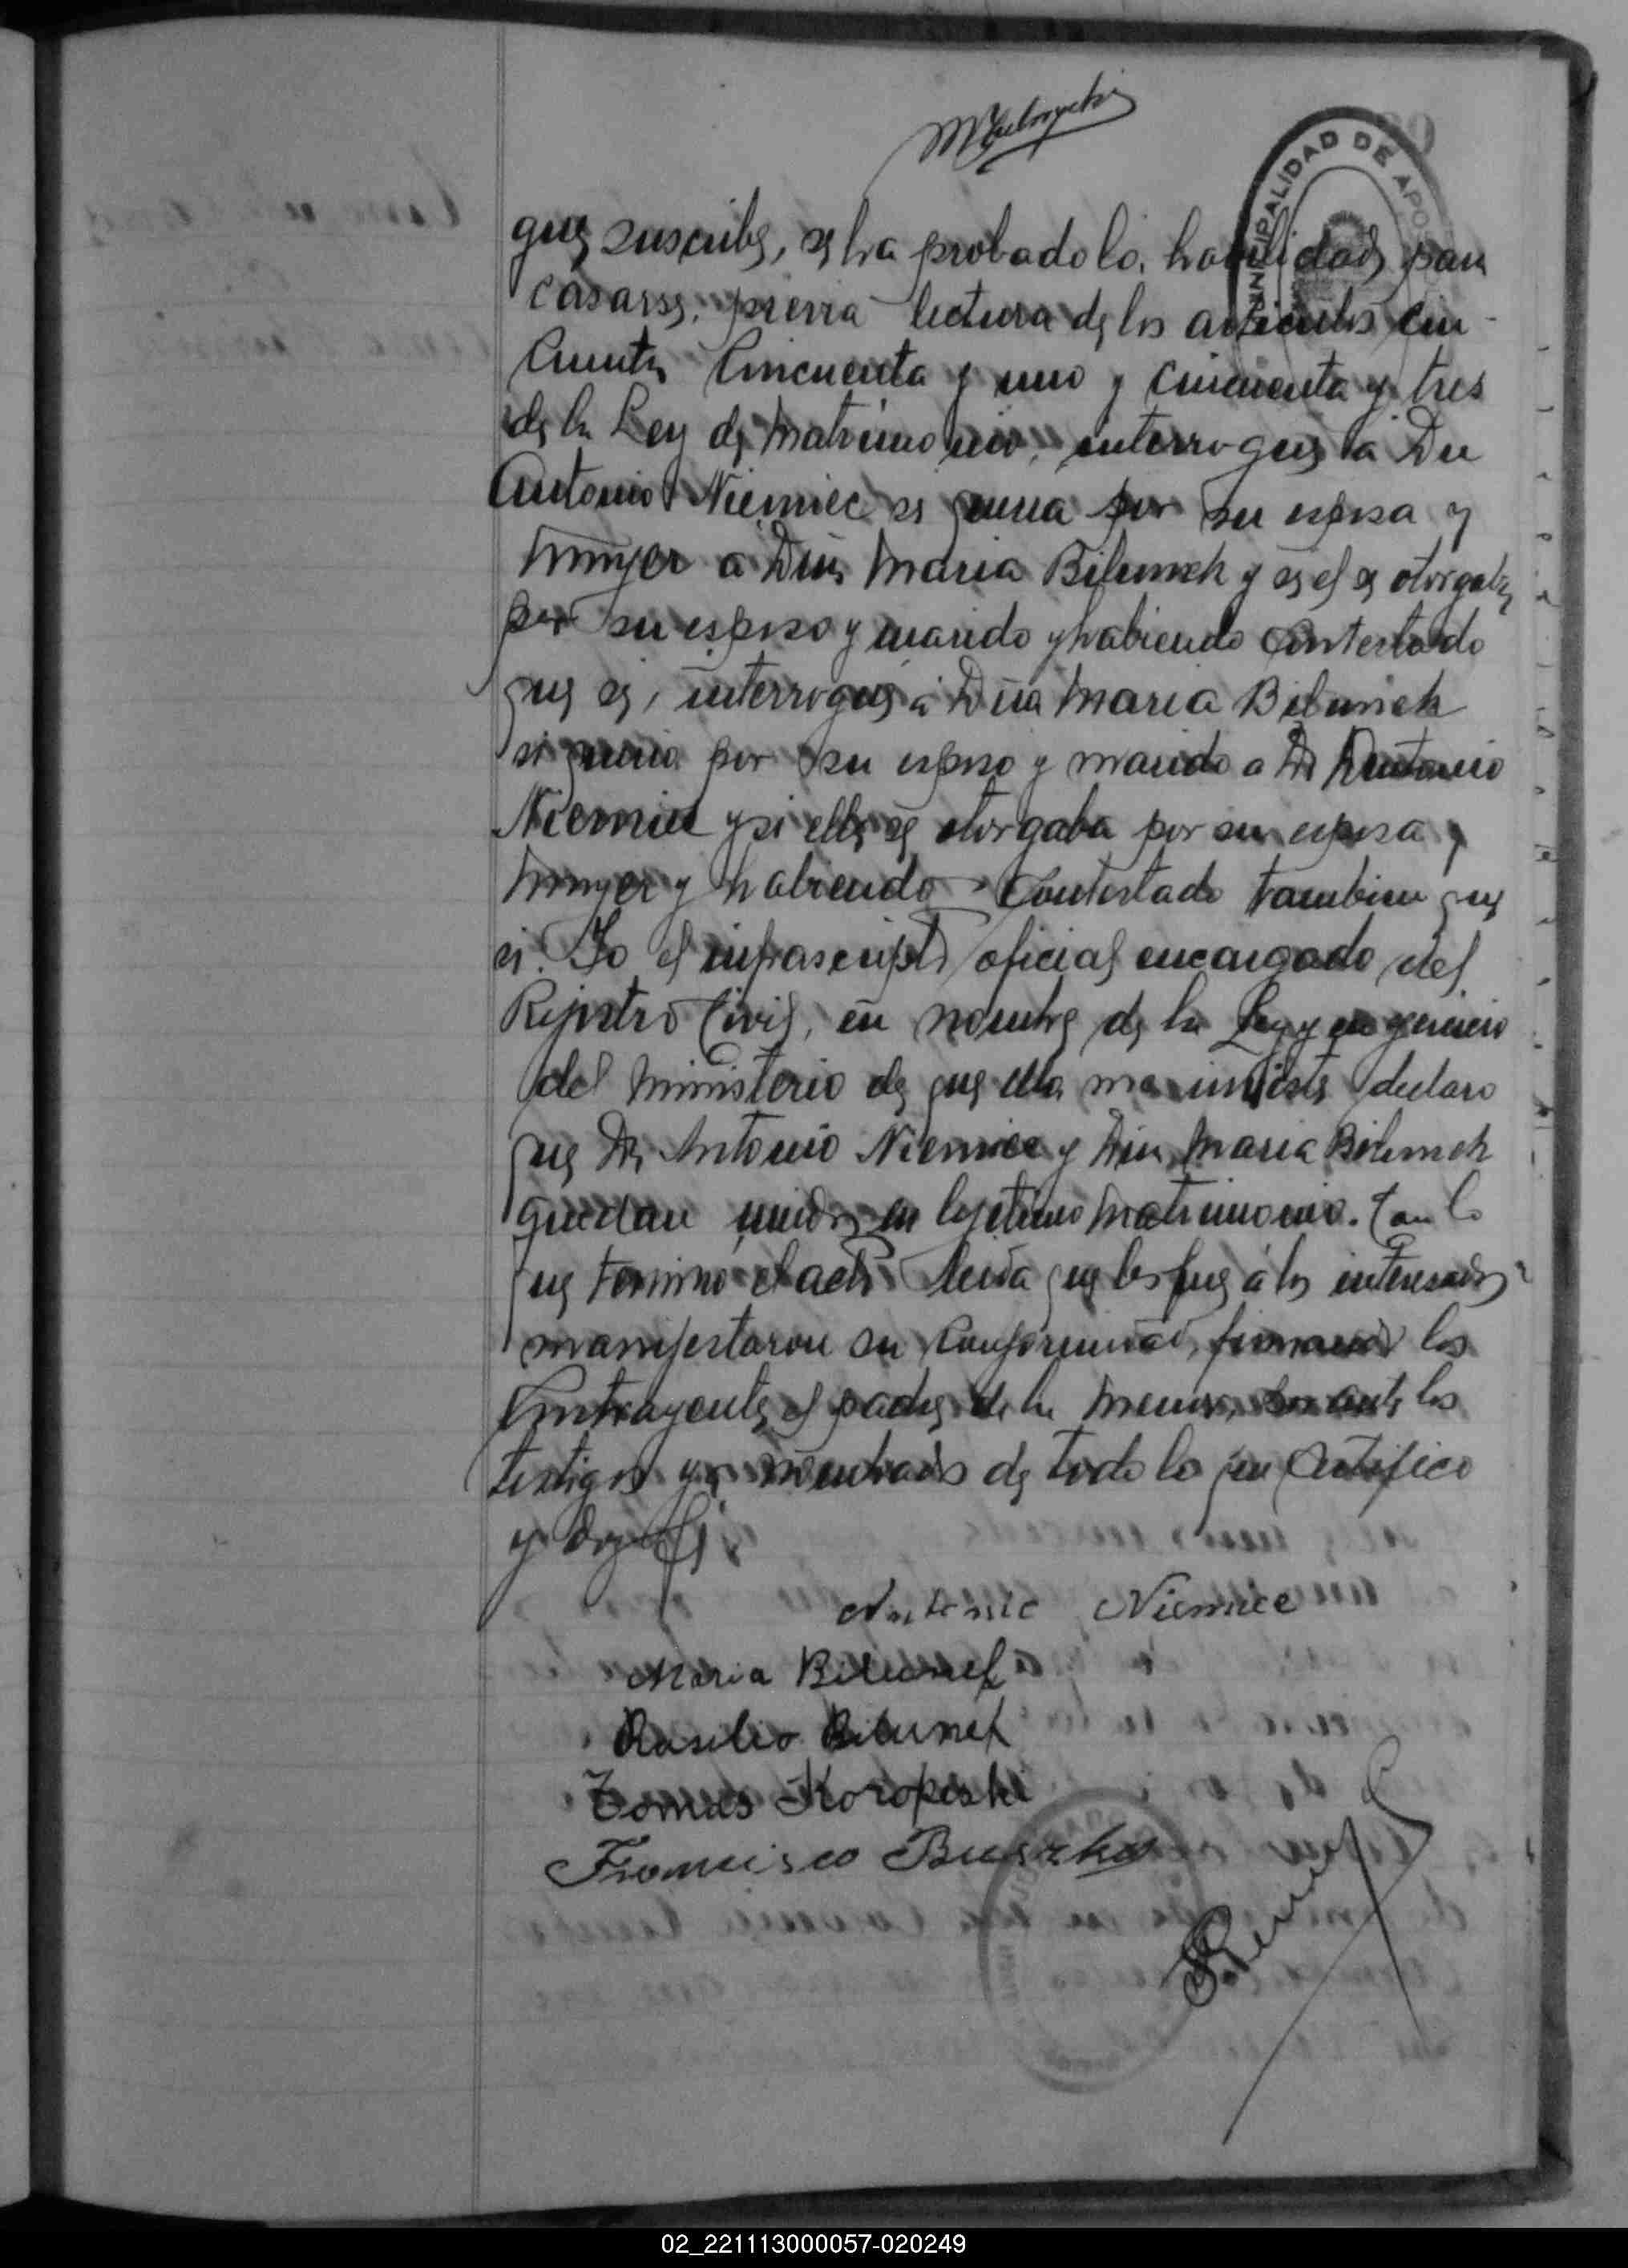 MUNICIPALIDAD DE APO
que suscribe, se ha probado la habilidad para
casarse, previa lectura de los articulos cin-
cuenta Cincuenta y uno y cincuenta y tres
de la Ley de Matrimonio, interrogué á Dn
Antonio Niemiec si queria por su esposa y
mujer a Dña Maria Bilunek y si el se otorgaba
por su esposo y marido y habiendo Contestado
que si, interrogué á Dña Maria Bilunek
si queria por su esposo y marido a Dn Antonio
Niemiec y si ella se otorgaba por su esposa y
mujer y habiendo Contestado tambien que
si. Yo el infrascripto oficial encargado del
Rejistro Civil, en nombre de la Ley y en ejercicio
del ministerio de que ella me inviste declaro
que Dn Antonio Niemiec y Dña Maria Bilunek
quedan unidos en lejitimo Matrimonio. Con lo
que terminó el acto leida que les fue á los interesados
manifestaron su Conformidad, firmando los
Contrayentes, el padre de la menor, los
testigos ya nombrados de todo lo que Certifico
y doy fé.
Antonio Niemiec
Maria Bilunek
Basilio Bilunek
Tomas Koropeski
Francisco Buszko
02_221113000057-020249